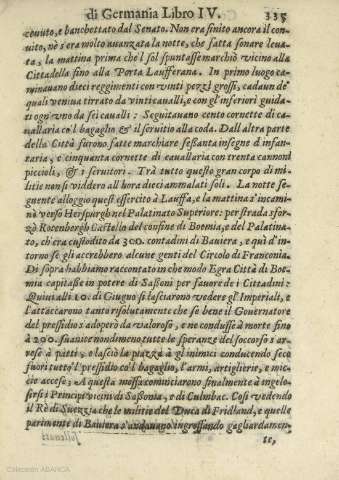 di Germania Libro IV. 335
ceuuto, e banchettato dal Senato. Non era finito ancora il con-
uito, nè s'era molto auanzata la notte, che fatta sonare leua-
ta, la mattina prima che'l sol spuntasse marchiò vicino alla
Cittadella fino alla Porta Laufferana. In primo luogo ca-
minauano dieci reggimenti con vinti pezzi grossi, cadaun de'
quali veniua tirrato da vinticaualli, e con gl'inferiori guida-
ti ogn'vno da sei caualli: Seguitauano cento cornette di ca-
uallaria co'l bagaglio & il seruitio alla coda. Dall altra parte
della Città furono fatte marchiare sessanta insegne d'infan-
taria, e cinquanta cornette di cauallaria con trenta cannoni
piccioli, & i seruitori. Trà tutto questo gran corpo di mi-
litie non si viddero all'hora dieci ammalati soli. La notte se-
guente alloggiò quest'essercito à Lauffa, e la mattina s'incam-
inò verso Herspurgh nel Palatinato Superiore: per strada sfor-
zò Rotenborgh Castello del confine di Boemia, e del Palatina-
to, ch'era custodito da 300. contadini di Bauiera, e quì d'in-
torno se gli accrebbero alcune genti del Circolo di Franconia.
Di sopra habbiamo raccontato in che modo Egra Città di Boe-
mia capitasse in potere di Sassoni per fauore de i Cittadini:
Quiui alli 10. di Giugno si lasciarono vedere gl'Imperiali, e
l'attaccarono tanto risolutamente che se bene il Gouernatore
del pressidio s'adoperò da valoroso, e ne condusse à morte fino
à 200. suanite nondimeno tutte le speranze del soccorso s'ar-
rese à patti, e lasciò la piazza à gl'inimici conducendo seco
fuori tutto'l pressidio co'l bagaglio, l'armi, artiglierie, e mic-
cie accese; A questa mossa cominciarono finalmente à ingelo-
sirsi i Principi vicini di Sassonia, e di Culmbac. Così vedendo
il Rè di Suezzia che le militie del Duca di Fridland, e quelle
parimente di Bauiera s'andauano ingrossando gagliardamen-
te,
Colección ABANCA